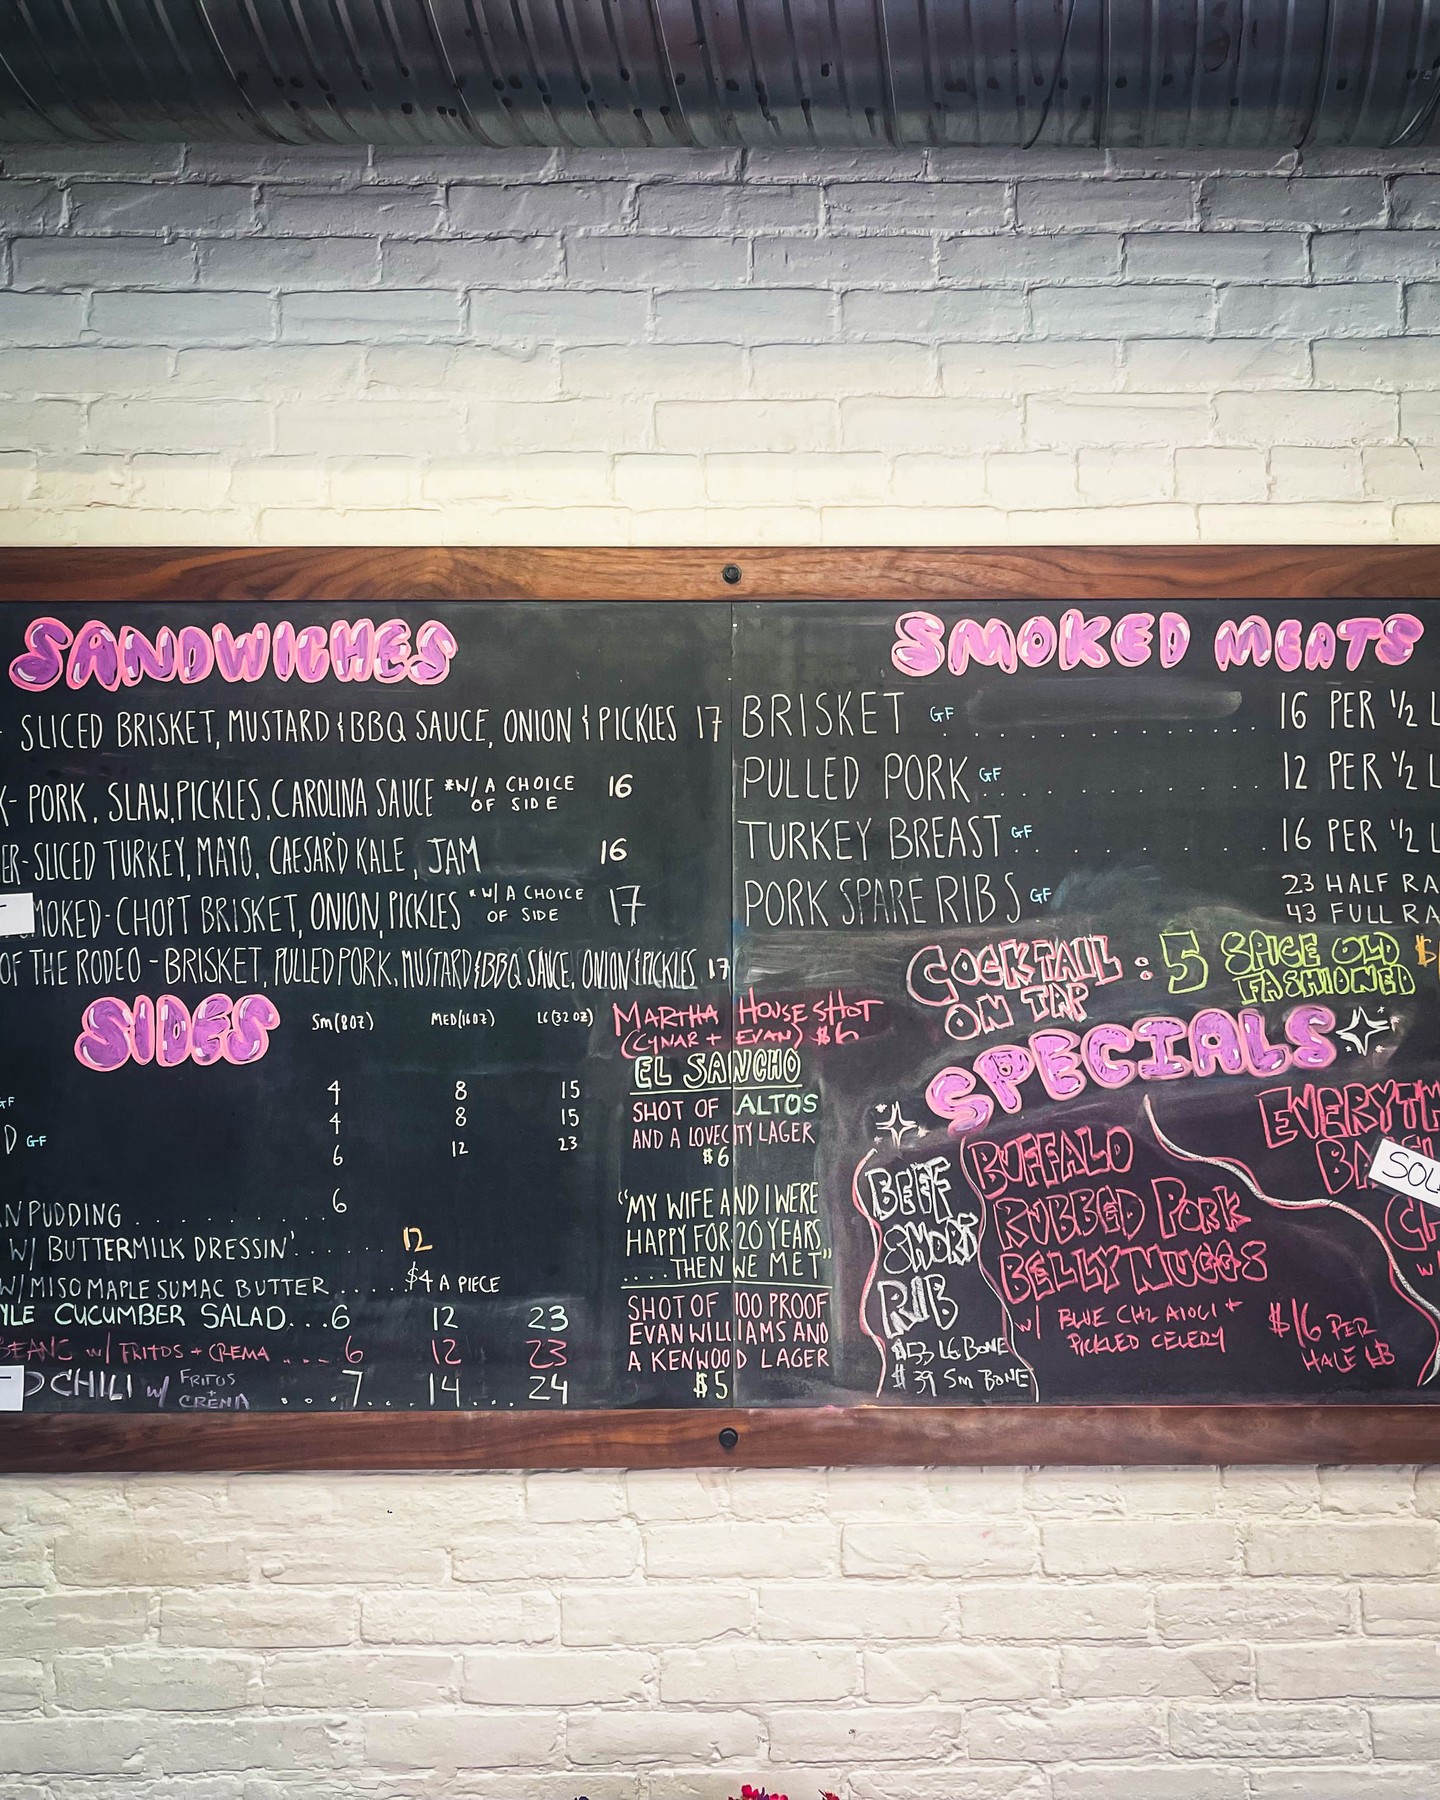 SANDWICHES
- SLICED BRISKET, MUSTARD & BBQ SAUCE, ONION & PICKLES 17
- PORK, SLAW, PICKLES, CAROLINA SAUCE *W/ A CHOICE OF SIDE 16
ER-SLICED TURKEY, MAYO, CAESAR'D KALE, JAM 16
MOKED-CHOPT BRISKET, ONION, PICKLES *W/ A CHOICE OF SIDE 17
OF THE RODEO - BRISKET, PULLED PORK, MUSTARD & BBQ SAUCE, ONION & PICKLES 17
SIDES SM(8OZ) MED(16OZ) LG(32OZ)
GF 4 8 15
D GF 4 8 15
6 12 23
6
N PUDDING . . . . . . . . . .
W/ BUTTERMILK DRESSIN'....... 12
W/ MISO MAPLE SUMAC BUTTER ..... $4 A PIECE
YLE CUCUMBER SALAD...6 12 23
BEANS W/ FRITOS + CREMA .... 6 12 23
CHILI W/ FRITOS + CREMA ....7... 14 ... 24
MARTHA HOUSE SHOT
(CYNAR + EVAN) $6
EL SANCHO
SHOT OF ALTOS
AND A LOVECITY LAGER
$6
"MY WIFE AND I WERE
HAPPY FOR 20 YEARS
....THEN WE MET"
SHOT OF 100 PROOF
EVAN WILLIAMS AND
A KENWOOD LAGER
$5
SMOKED MEATS
BRISKET GF . . . . . . . . . . 16 PER 1/2 L
PULLED PORK GF . . . . . . . . . 12 PER 1/2 L
TURKEY BREAST GF . . . . . . . . 16 PER 1/2 L
PORK SPARE RIBS GF
23 HALF RA
43 FULL RA
COCKTAIL ON TAP : 5 SPICE OLD FASHIONED $
SPECIALS
BEEF
SHORT
RIB
$53 LG BONE
$39 SM BONE
BUFFALO
RUBBED PORK
BELLY NUGGS
W/ BLUE CHZ AIOLI +
PICKLED CELERY
$16 PER
HALF LB
EVERYTH
BA
SOL
W/